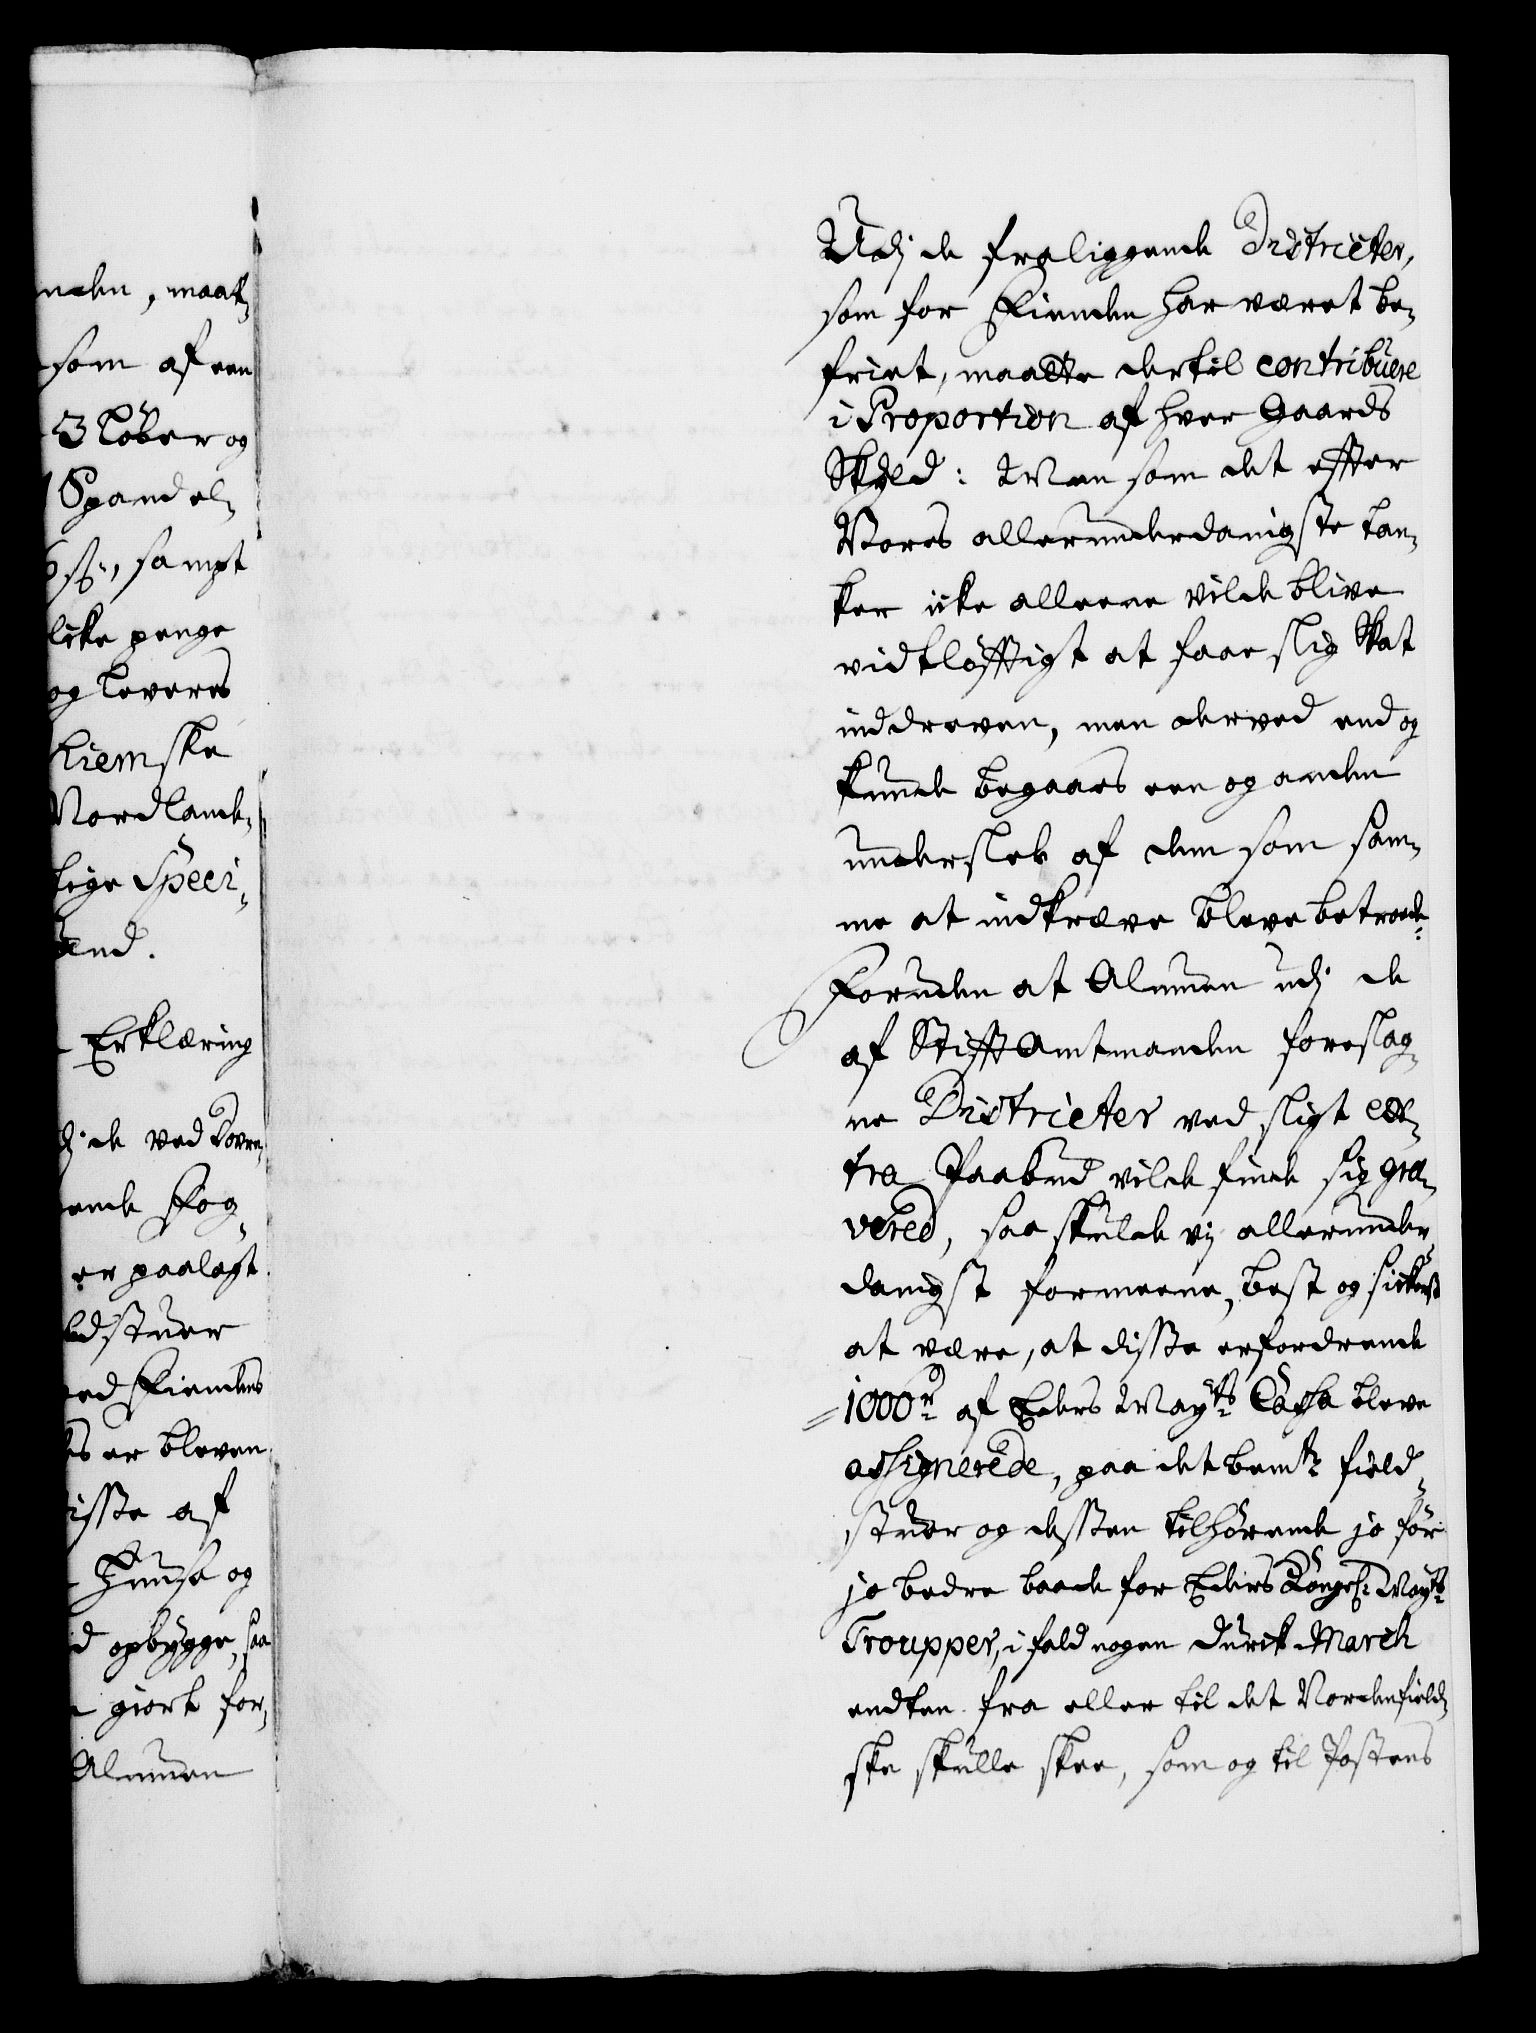 nden, maat-
som af een
3 Løber og
1 Spandel-
6 sk:, sampt
like penge
og leveres
hiemske
Nordland-
lige Speci-
end.
Erklæring
dj de ved Dovre-
ende Fog-
er paalagt
ldstuer
ed Fiendens
es er bleven
disse af
Huuse og
d opbygge, saa
giort for-
Almuen
Udj de fraliggende Districter,
som for Fienden har været be-
friet, maatte dertil contribuere
i Proportion af hver Gaards
Skyld: Men som det effter
Vores allerunderdanigste tan-
ker icke alleene vilde blive
vidtløfftigt at faae slig Skat
inddreven, men derved end og
kunde begaaes een og anden
undersleb af dem som sam-
me at indkræve bleve betroede.
Foruden at Almuen udj de
af StifftAmtmanden foreslag-
ne Districter ved sligt ex-
tra Paabud vilde finde sig gra-
vered, saa skulde vj allerunder-
danigst formeene, best og sickerst
at være, at disse erfordrende
1000 r af Eders Mayts Cassa bleve
assignerede, paa det bemte field-
stuer og dessen tilhørende jo før
jo bedre baade for Eders Kongel: Mayts
Troupper, i fald nogen durck March
endten fra eller til det Nordenfield-
ske skulle skee, som og til Postens